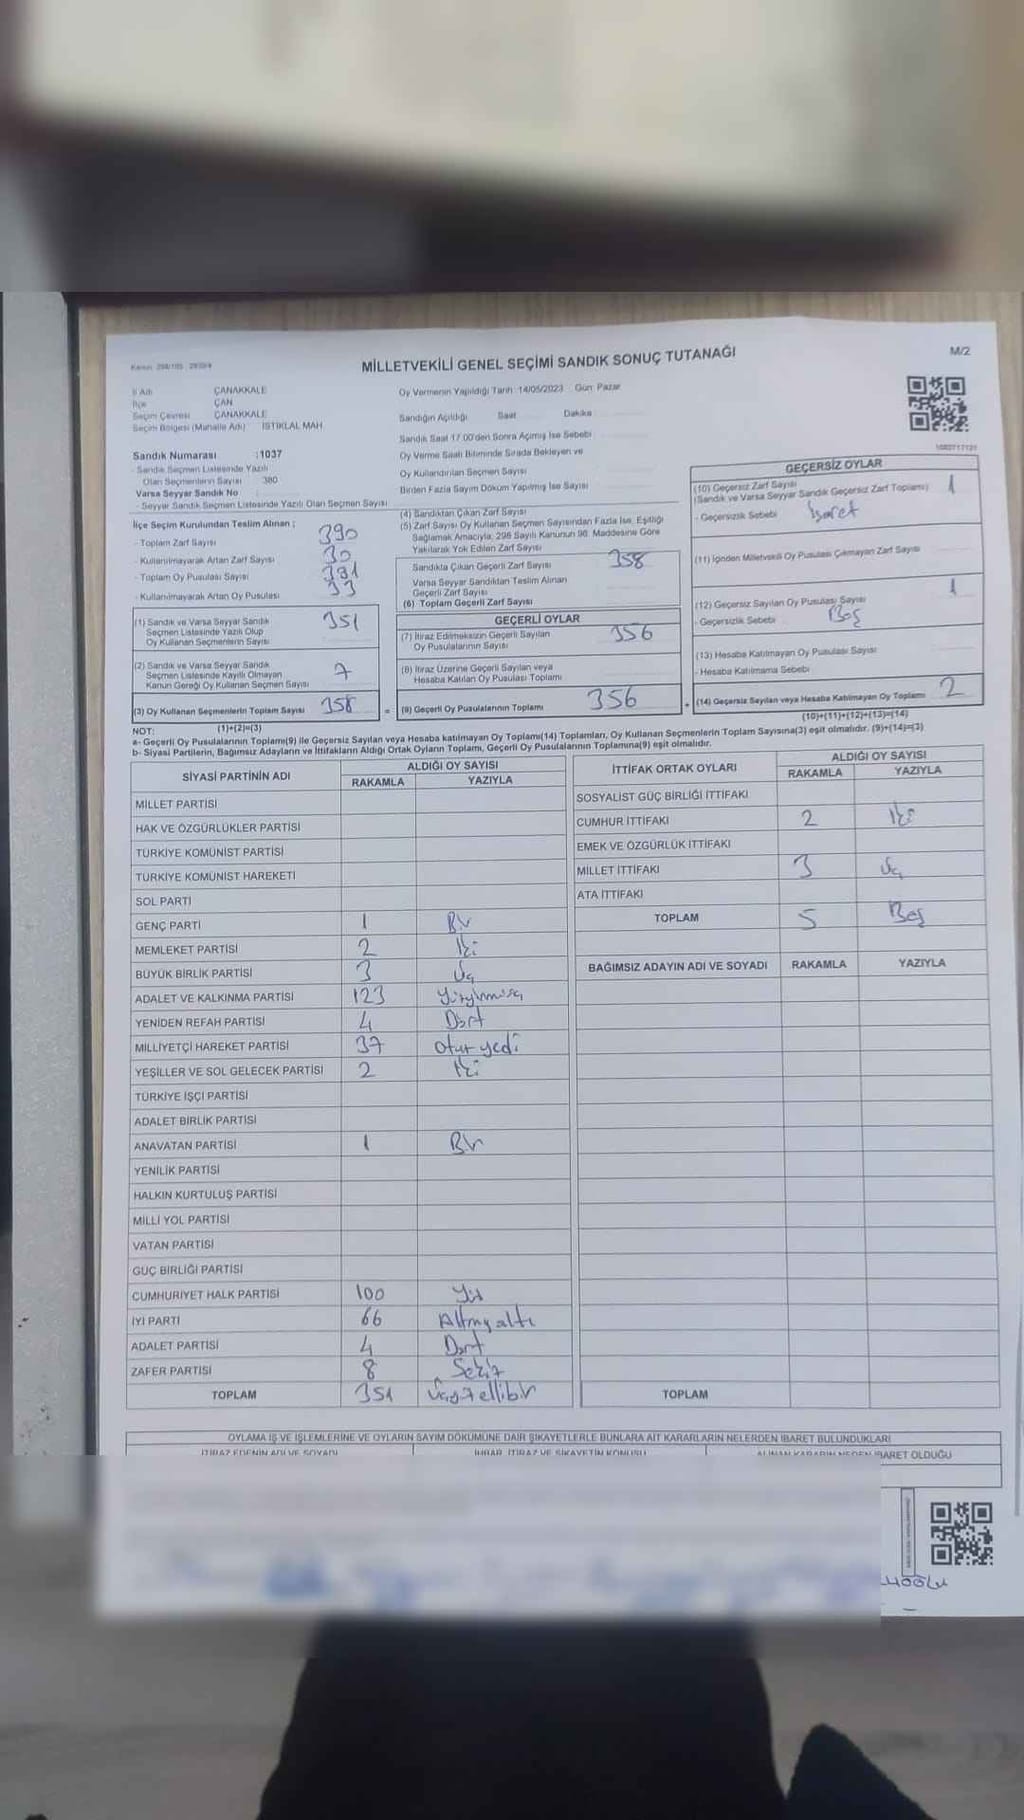 MİLLETVEKİLİ GENEL SEÇİMİ SANDIK SONUÇ TUTANAĞI
M/2
İl Adı ÇANAKKALE
İlçe ÇAN
Seçim Çevresi ÇANAKKALE
Seçim Bölgesi (Mahalle Adı) İSTİKLAL MAH
Sandık Numarası :1037
- Sandık Seçmen Listesinde Yazılı
Olan Seçmenlerin Sayısı 380
Varsa Seyyar Sandık No
- Seyyar Sandık Seçmen Listesinde Yazılı Olan Seçmen Sayısı
İlçe Seçim Kurulundan Teslim Alınan ;
- Toplam Zarf Sayısı 390
- Kullanılmayarak Artan Zarf Sayısı 30
- Toplam Oy Pusulası Sayısı 391
- Kullanılmayarak Artan Oy Pusulası 33
(1) Sandık ve Varsa Seyyar Sandık
Seçmen Listesinde Yazılı Olup
Oy Kullanan Seçmenlerin Sayısı 351
(2) Sandık ve Varsa Seyyar Sandık
Seçmen Listesinde Kayıtlı Olmayan
Kanun Gereği Oy Kullanan Seçmen Sayısı 7
(3) Oy Kullanan Seçmenlerin Toplam Sayısı 358
(1)+(2)=(3)
Oy Vermenin Yapıldığı Tarih :14/05/2023 Gün: Pazar
Sandığın Açıldığı Saat Dakika
Sandık Saat 17.00'den Sonra Açılmış İse Sebebi
Oy Verme Saati Bitiminde Sırada Bekleyen ve
Oy Kullandırılan Seçmen Sayısı
Birden Fazla Sayım Döküm Yapılmış İse Sayısı
(4) Sandıktan Çıkan Zarf Sayısı
(5) Zarf Sayısı Oy Kullanan Seçmen Sayısından Fazla İse, Eşitliği
Sağlamak Amacıyla, 298 Sayılı Kanunun 98. Maddesine Göre
Yakılarak Yok Edilen Zarf Sayısı
Sandıkta Çıkan Geçerli Zarf Sayısı 358
Varsa Seyyar Sandıktan Teslim Alınan
Geçerli Zarf Sayısı
(6) Toplam Geçerli Zarf Sayısı
GEÇERLİ OYLAR
(7) İtiraz Edilmeksizin Geçerli Sayılan
Oy Pusulalarının Sayısı 356
(8) İtiraz Üzerine Geçerli Sayılan veya
Hesaba Katılan Oy Pusulası Toplamı
(9) Geçerli Oy Pusulalarının Toplamı 356
GEÇERSİZ OYLAR
(10) Geçersiz Zarf Sayısı
(Sandık ve Varsa Seyyar Sandık Geçersiz Zarf Toplamı) 1
- Geçersizlik Sebebi İşaret
(11) İçinden Milletvekili Oy Pusulası Çıkmayan Zarf Sayısı
(12) Geçersiz Sayılan Oy Pusulası Sayısı 1
- Geçersizlik Sebebi Boş
(13) Hesaba Katılmayan Oy Pusulası Sayısı
- Hesaba Katılmama Sebebi
(14) Geçersiz Sayılan veya Hesaba Katılmayan Oy Toplamı 2
(10)+(11)+(12)+(13)=(14)
NOT:
a- Geçerli Oy Pusulalarının Toplamı(9) ile Geçersiz Sayılan veya Hesaba katılmayan Oy Toplamı(14) Toplamları, Oy Kullanan Seçmenlerin Toplam Sayısına(3) eşit olmalıdır. (9)+(14)=(3)
b- Siyasi Partilerin, Bağımsız Adayların ve İttifakların Aldığı Ortak Oyların Toplamı, Geçerli Oy Pusulalarının Toplamına(9) eşit olmalıdır.
SİYASİ PARTİNİN ADI ALDIĞI OY SAYISI
RAKAMLA YAZIYLA
MİLLET PARTİSİ
HAK VE ÖZGÜRLÜKLER PARTİSİ
TÜRKİYE KOMÜNİST PARTİSİ
TÜRKİYE KOMÜNİST HAREKETİ
SOL PARTİ
GENÇ PARTİ 1 Bir
MEMLEKET PARTİSİ 2 İki
BÜYÜK BİRLİK PARTİSİ 3 Üç
ADALET VE KALKINMA PARTİSİ 123
YENİDEN REFAH PARTİSİ 4 Dört
MİLLİYETÇİ HAREKET PARTİSİ 37 otuz yedi
YEŞİLLER VE SOL GELECEK PARTİSİ 2 İki
TÜRKİYE İŞÇİ PARTİSİ
ADALET BİRLİK PARTİSİ
ANAVATAN PARTİSİ 1 Bir
YENİLİK PARTİSİ
HALKIN KURTULUŞ PARTİSİ
MİLLİ YOL PARTİSİ
VATAN PARTİSİ
GÜÇ BİRLİĞİ PARTİSİ
CUMHURİYET HALK PARTİSİ 100 Yüz
İYİ PARTİ 66 Altmışaltı
ADALET PARTİSİ 4 Dört
ZAFER PARTİSİ 8 Sekiz
TOPLAM 351 Üçyüzellibir
İTTİFAK ORTAK OYLARI ALDIĞI OY SAYISI
RAKAMLA YAZIYLA
SOSYALİST GÜÇ BİRLİĞİ İTTİFAKI
CUMHUR İTTİFAKI 2 İki
EMEK VE ÖZGÜRLÜK İTTİFAKI
MİLLET İTTİFAKI 3 Üç
ATA İTTİFAKI
TOPLAM 5 Beş
BAĞIMSIZ ADAYIN ADI VE SOYADI RAKAMLA YAZIYLA
TOPLAM
OYLAMA İŞ VE İŞLEMLERİNE VE OYLARIN SAYIM DÖKÜMÜNE DAİR ŞİKAYETLERLE BUNLARA AİT KARARLARIN NELERDEN İBARET BULUNDUKLARI
İTİRAZ EDENİN ADI VE SOYADI İHBAR, İTİRAZ VE ŞİKAYETİN KONUSU ALINAN KARARIN NEDEN İBARET OLDUĞU